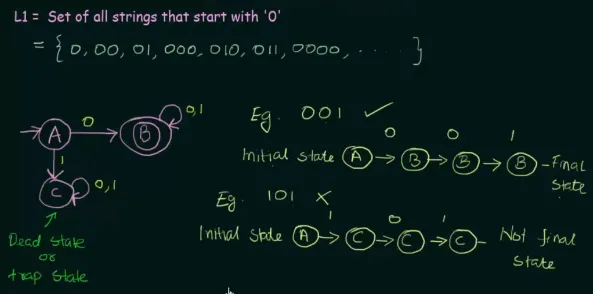 L1 = Set of all strings that start with '0'
= { 0, 00, 01, 000, 010, 011, 0000, ..... }
0
0,1
A
B
1
C
0,1
Dead State
or
trap State
Eg. 001 ✓
0 0 1
Initial state A → B → B → B - Final State
Eg. 101 ✗
1 0 1
Initial State A → C → C → C - Not final State